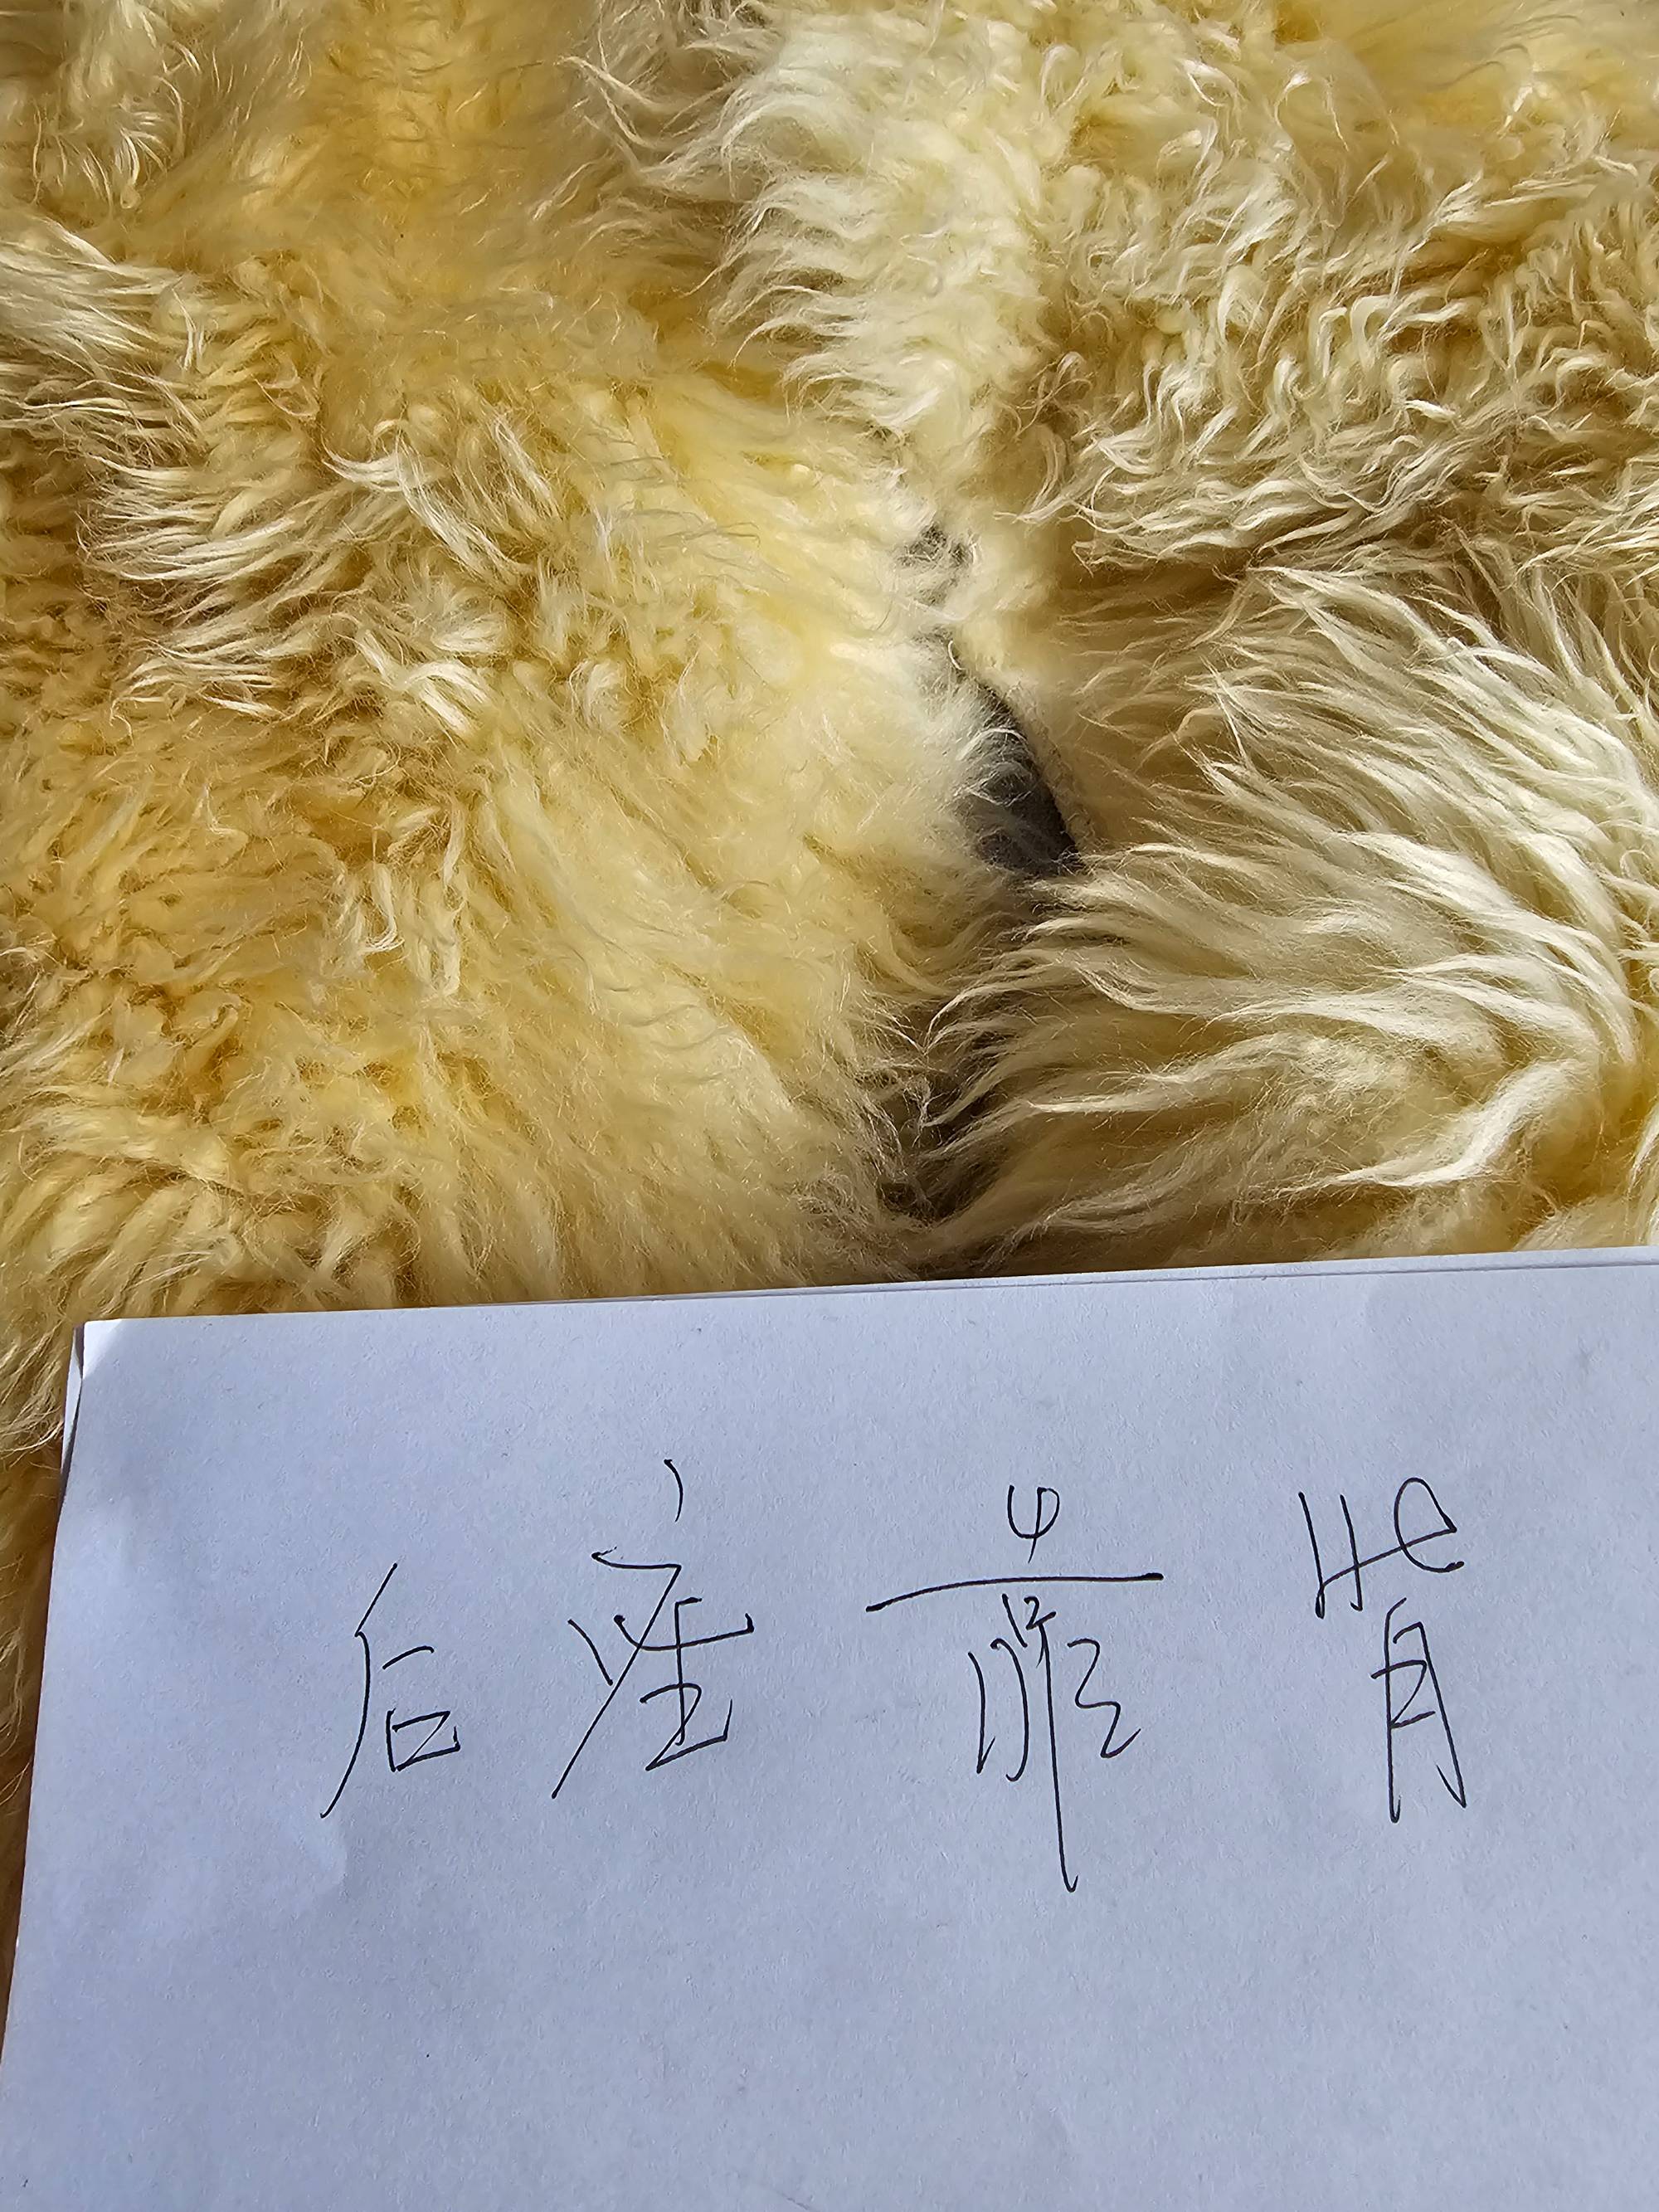 后座靠背